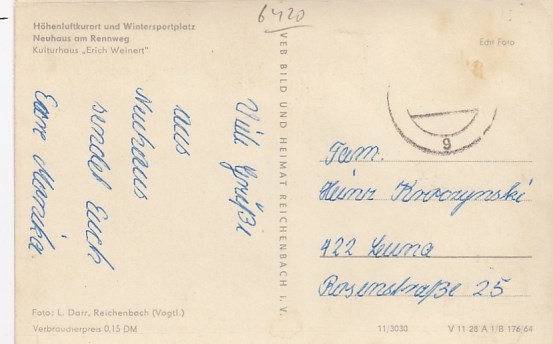 6420
Höhenluftkurort und Wintersportplatz
Neuhaus am Rennweg
Kulturhaus „Erich Weinert"
Edit Foto
Viele Grüße
aus
Neuhaus
sendet Euch
Eure Monika
VEB BILD UND HEIMAT REICHENBACH I. V.
9
Fam.
Heinz Kroczynski
422 Leuna
Rosenstraße 25
Foto: L. Darr, Reichenbach (Vogtl.)
Verbraucherpreis 0,15 DM
11/3030
V 11 28 A 1/B 176/64